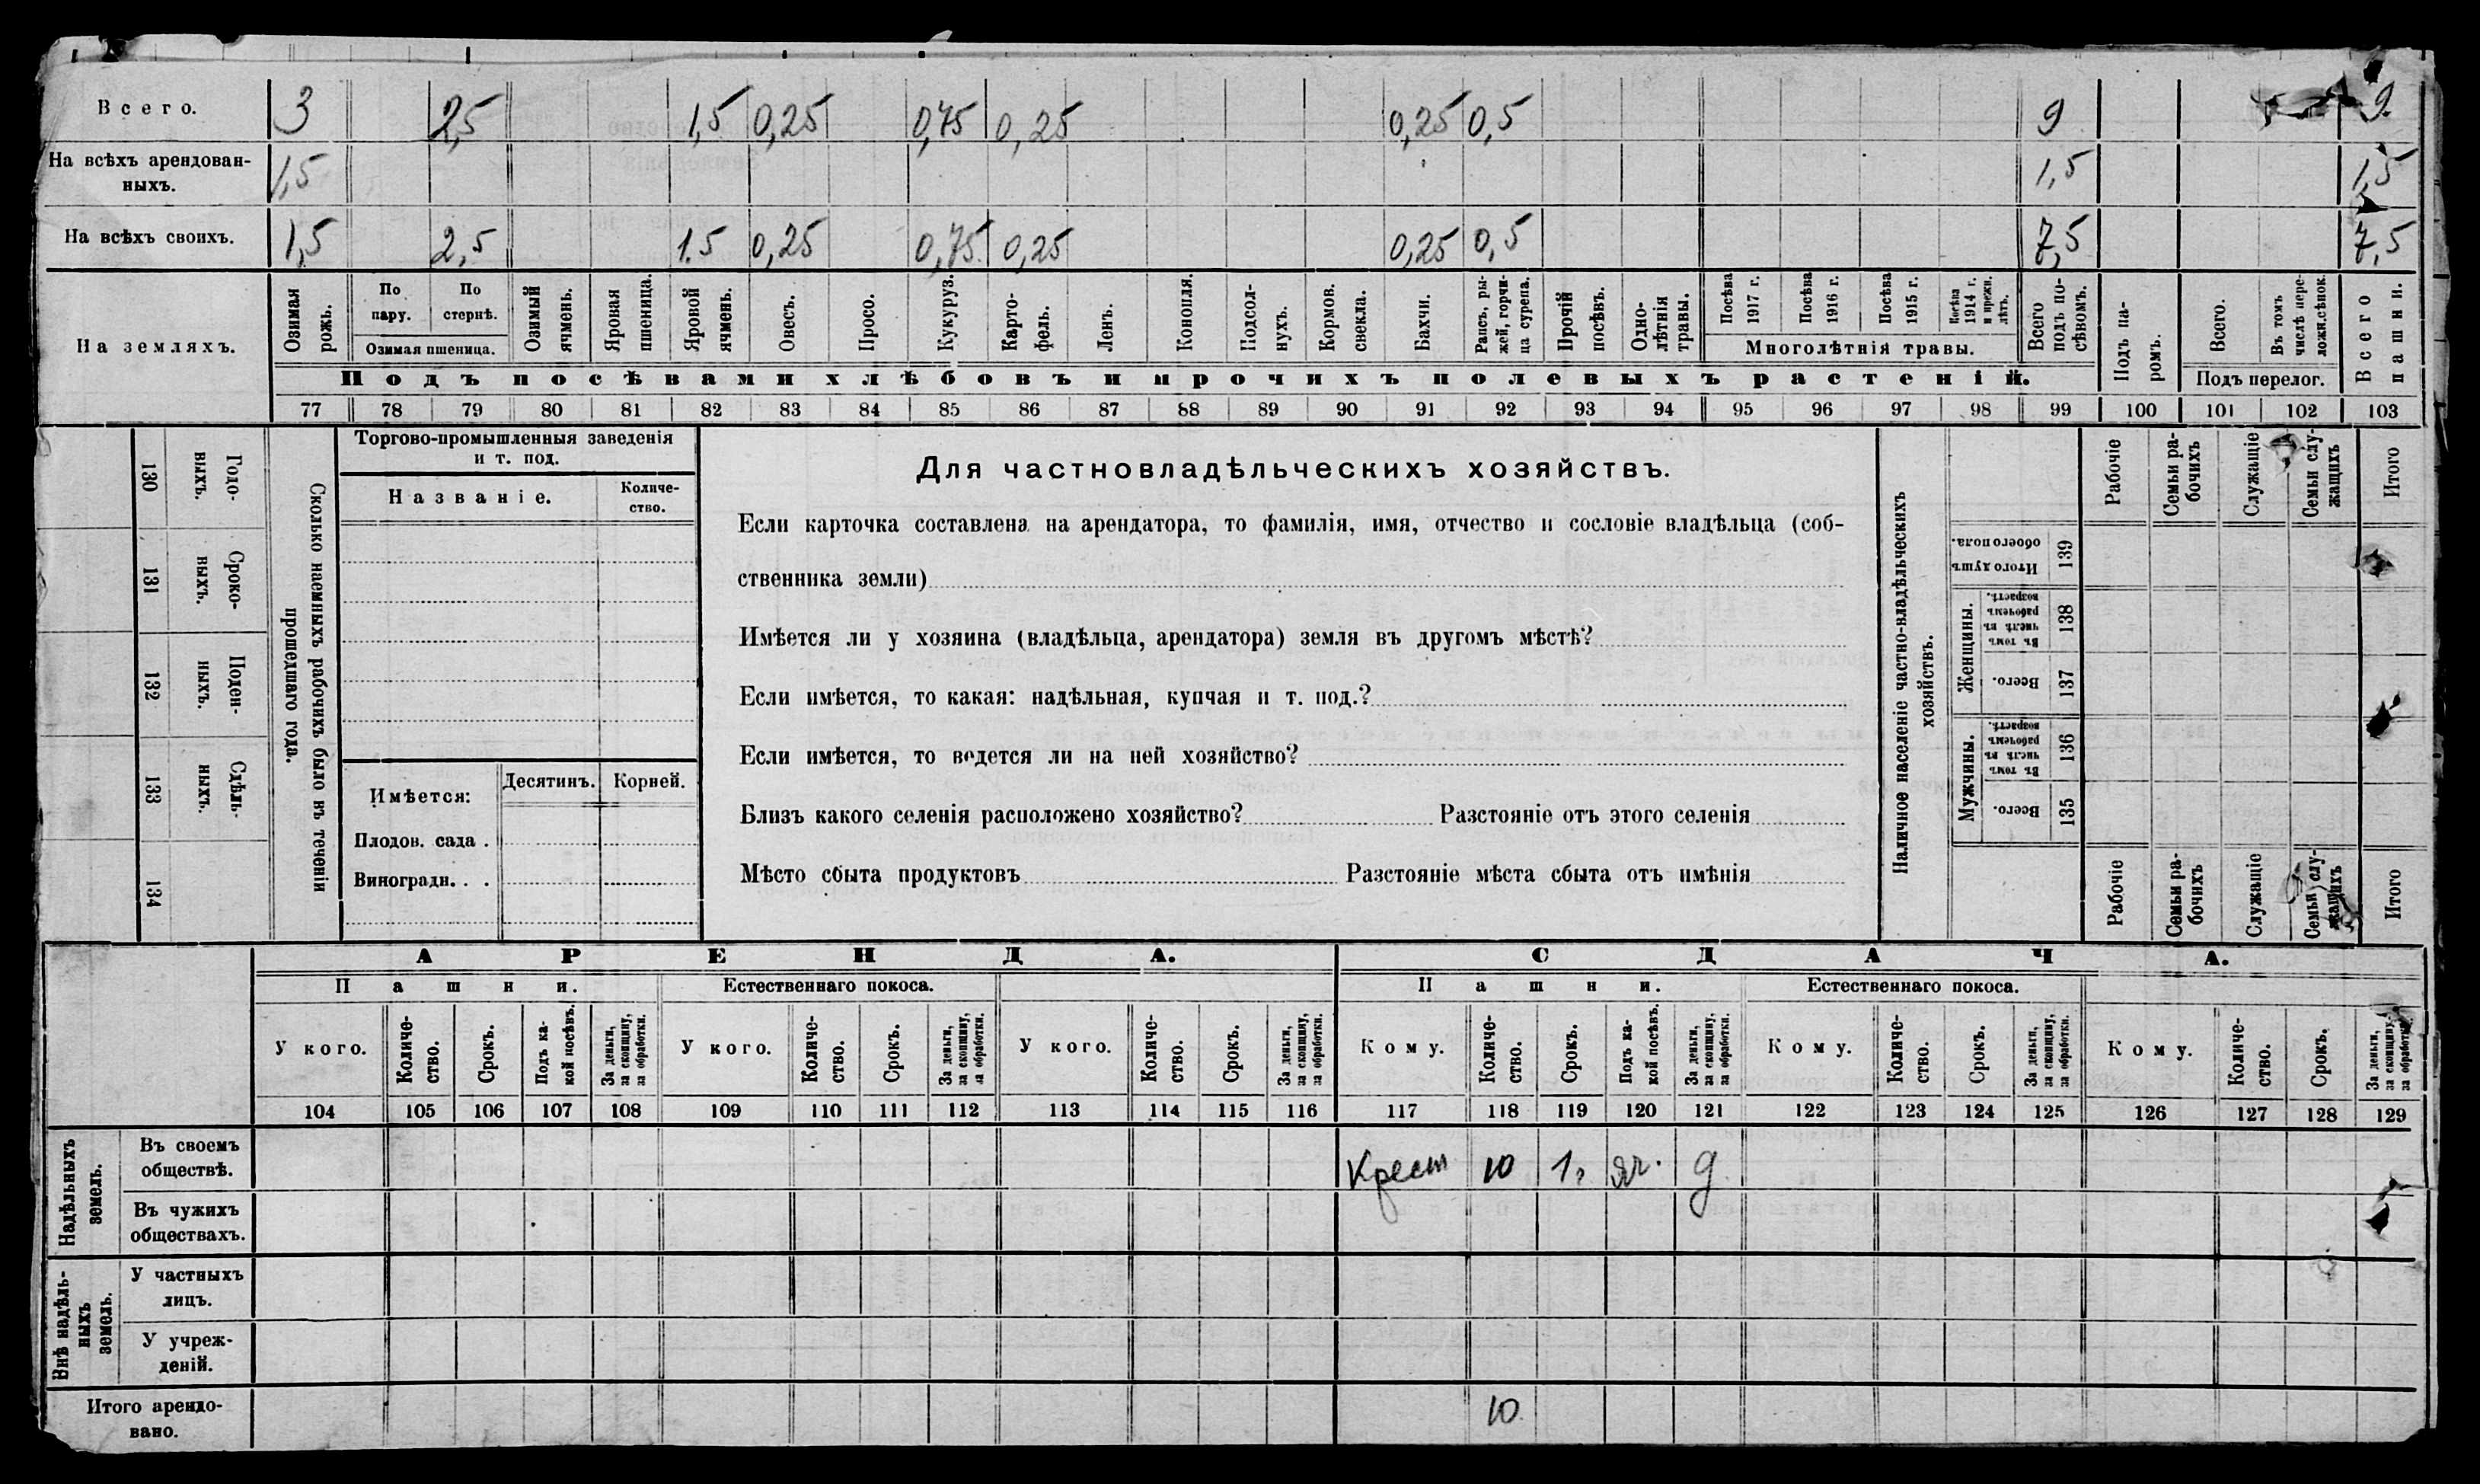 Всего. 3 2,5 1,5 0,25 0,75 0,25 0,25 0,5 9 9
На всѣхъ арендован-
ныхъ. 1,5 1,5 1,5
На всѣхъ своихъ. 1,5 2,5 1.5 0,25 0,75 0,25 0,25 0,5 7,5 7,5
На земляхъ.
Озимая рожь.
По пару.
По стернѣ.
Озимая пшеница.
Озимый ячмень.
Яровая пшеница.
Яровой ячмень.
Овесъ.
Просо.
Кукуруз.
Карто-
фель.
Ленъ.
Конопля.
Подсол-
нухъ.
Кормов.
свекла.
Бахчи.
Рапсъ, ры-
жей, горчи-
ца сурепа.
Прочій
посѣвъ.
Одно-
лѣтнія
травы.
Посѣва
1917 г.
Посѣва
1916 г.
Посѣва
1915 г.
Посѣва
1914 г.
и прежн.
лѣтъ.
Многолѣтнія травы.
Всего
подъ по-
сѣвомъ.
Подъ па-
ромъ.
Всего.
Въ томъ
числѣ пере-
ложн.сѣнок.
Подъ перелог.
Всего
пашни.
Подъ посѣвами хлѣбовъ и прочихъ полевыхъ растеній.
77 78 79 80 81 82 83 84 85 86 87 88 89 90 91 92 93 94 95 96 97 98 99 100 101 102 103
Сколько наемныхъ рабочихъ было въ теченіи
прошедшаго года.
Годо-
выхъ.
130
Сроко-
ныхъ.
131
Поден-
ныхъ.
132
Сдѣль-
ныхъ.
133
134
Торгово-промышленныя заведенія
и т. под.
Названіе.
Количе-
ство.
Имѣется:
Десятинъ.
Корней.
Плодов. сада .
Виноградн. . .
Для частновладѣльческихъ хозяйствъ.
Если карточка составлена на арендатора, то фамилія, имя, отчество и сословіе владѣльца (соб-
ственника земли)
Имѣется ли у хозяина (владѣльца, арендатора) земля въ другомъ мѣстѣ?
Если имѣется, то какая: надѣльная, купчая и т. под.?
Если имѣется, то ведется ли на ней хозяйство?
Близъ какого селенія расположено хозяйство? Разстояніе отъ этого селенія
Мѣсто сбыта продуктовъ Разстояніе мѣста сбыта отъ имѣнія
Наличное населеніе частно-владѣльческихъ
хозяйствъ.
Рабочіе
Семьи ра-
бочихъ
Служащіе
Семьи слу-
жащихъ
Итого
Итого душъ
обоего пола.
139
Женщины.
Въ томъ
числѣ въ
рабочемъ
возрастѣ.
138
Всего.
137
Мужчины.
Въ томъ
числѣ въ
рабочемъ
возрастѣ.
136
Всего.
135
Рабочіе
Семьи ра-
бочихъ
Служащіе
Семьи слу-
жащихъ
Итого
АРЕНДА. СДАЧА.
Пашни. Естественнаго покоса. Пашни. Естественнаго покоса.
У кого.
Количе-
ство.
Срокъ.
Подъ ка-
кой посѣвъ.
За деньги,
за скопщину,
за обработки.
У кого.
Количе-
ство.
Срокъ.
За деньги,
за скопщину,
за обработки.
У кого.
Количе-
ство.
Срокъ.
За деньги,
за скопщину,
за обработки.
Кому.
Количе-
ство.
Срокъ.
Подъ ка-
кой посѣвъ.
За деньги,
за скопщину,
за обработки.
Кому.
Количе-
ство.
Срокъ.
За деньги,
за скопщину,
за обработки.
Кому.
Количе-
ство.
Срокъ.
За деньги,
за скопщину,
за обработки.
104 105 106 107 108 109 110 111 112 113 114 115 116 117 118 119 120 121 122 123 124 125 126 127 128 129
Надѣльныхъ
земель.
Въ своемъ
обществѣ. Крест 10 1, яч. д
Въ чужихъ
обществахъ.
Внѣ надѣль-
ныхъ
земель.
У частныхъ
лицъ.
У учреж-
деній.
Итого арендо-
вано. 10